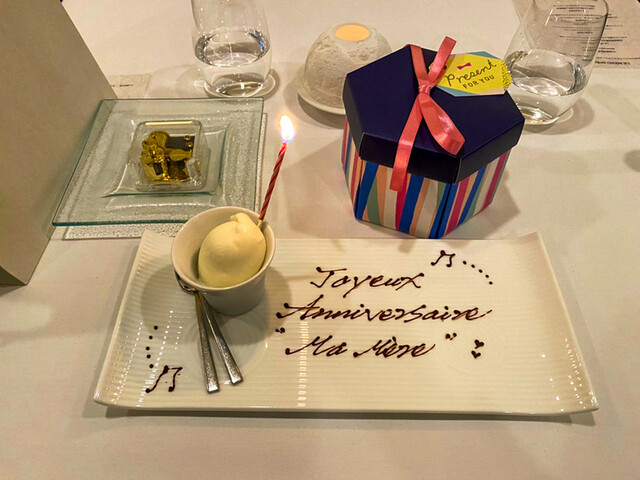 Present
FOR YOU
Joyeux
Anniversaire
"Ma Mère"